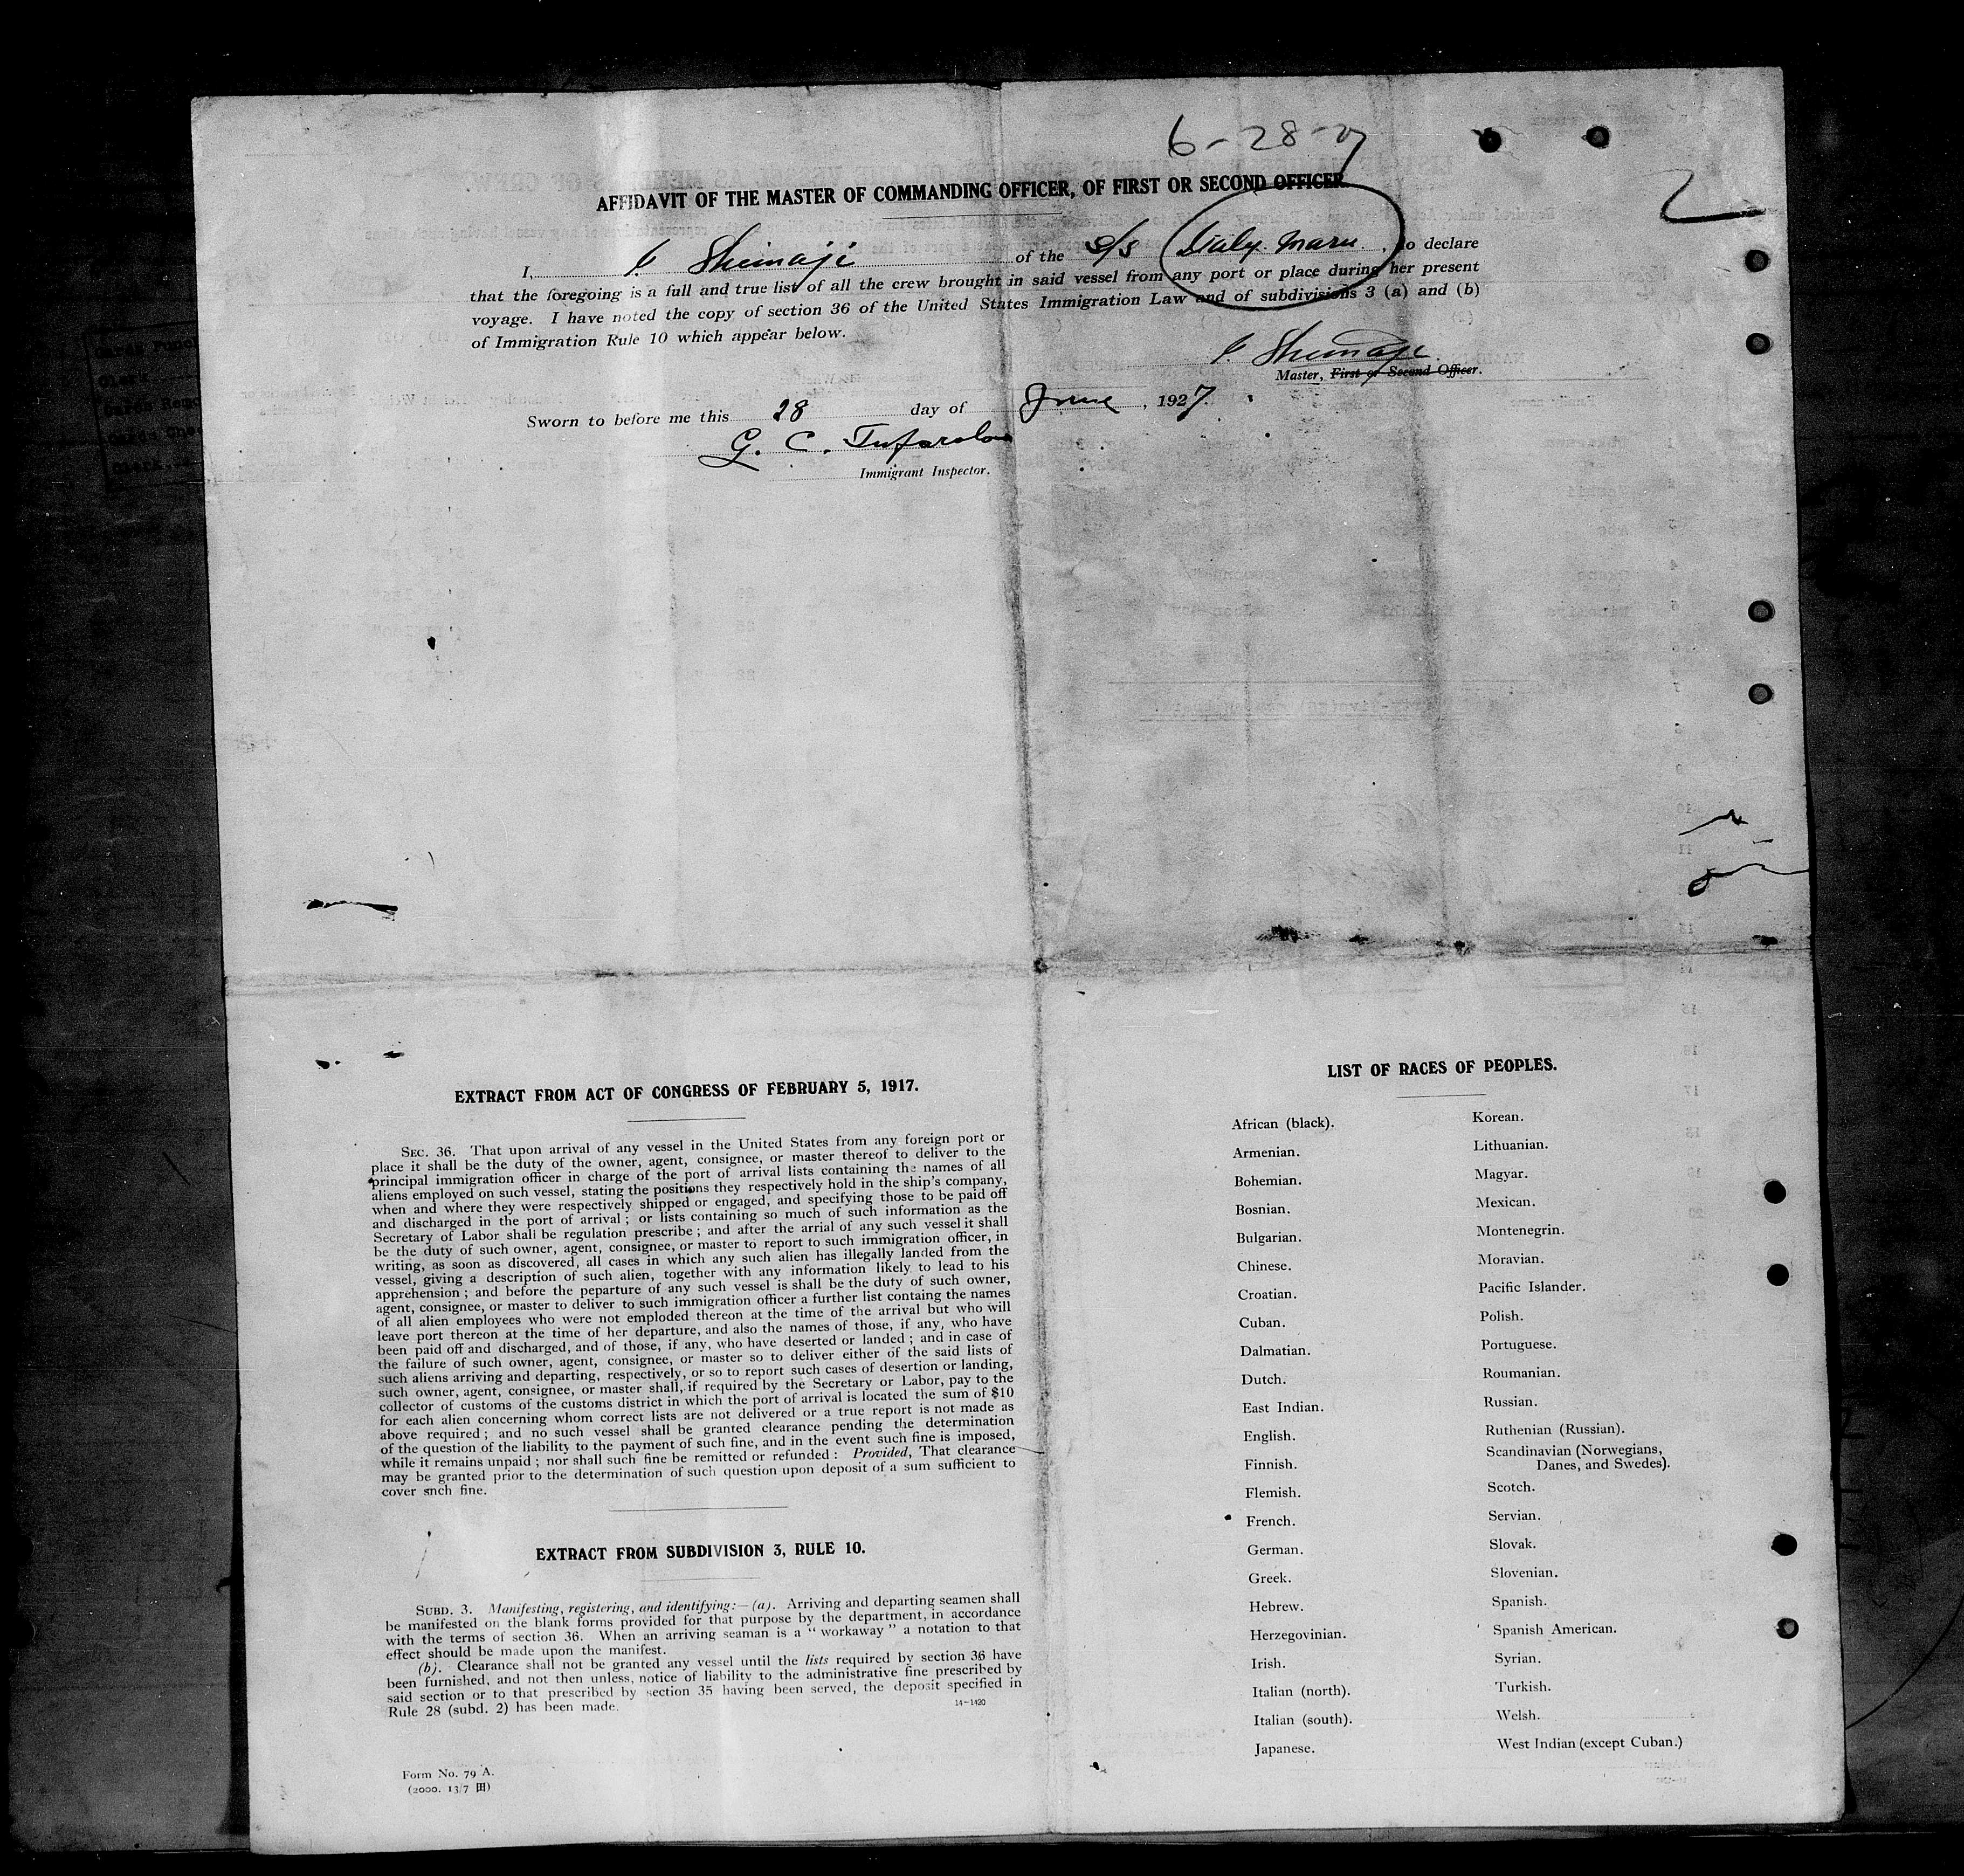 6-28-27
AFFIDAVIT OF THE MASTER OF COMMANDING OFFICER, OF FIRST OR SECOND OFFICER.
I, Shimaji of the s/s Italy Maru, do declare
that the foregoing is a full and true list of all the crew brought in said vessel from any port or place during her present
voyage. I have noted the copy of section 36 of the United States Immigration Law and of subdivisions 3 (a) and (b)
of Immigration Rule 10 which appear below.
Shimaji
Master, First or Second Officer.
Sworn to before me this 28 day of June, 1927.
G. C.
Immigrant Inspector.
EXTRACT FROM ACT OF CONGRESS OF FEBRUARY 5, 1917.
SEC. 36. That upon arrival of any vessel in the United States from any foreign port or
place it shall be the duty of the owner, agent, consignee, or master thereof to deliver to the
principal immigration officer in charge of the port of arrival lists containing the names of all
aliens employed on such vessel, stating the positions they respectively hold in the ship's company,
when and where they were respectively shipped or engaged, and specifying those to be paid off
and discharged in the port of arrival ; or lists containing so much of such information as the
Secretary of Labor shall be regulation prescribe ; and after the arrial of any such vessel it shall
be the duty of such owner, agent, consignee, or master to report to such immigration officer, in
writing, as soon as discovered, all cases in which any such alien has illegally landed from the
vessel, giving a description of such alien, together with any information likely to lead to his
apprehension ; and before the peparture of any such vessel is shall be the duty of such owner,
agent, consignee, or master to deliver to such immigration officer a further list containg the names
of all alien employees who were not emploded thereon at the time of the arrival but who will
leave port thereon at the time of her departure, and also the names of those, if any, who have
been paid off and discharged, and of those, if any, who have deserted or landed ; and in case of
the failure of such owner, agent, consignee, or master so to deliver either of the said lists of
such aliens arriving and departing, respectively, or so to report such cases of desertion or landing,
such owner, agent, consignee, or master shall, if required by the Secretary or Labor, pay to the
collector of customs of the customs district in which the port of arrival is located the sum of $10
for each alien concerning whom correct lists are not delivered or a true report is not made as
above required ; and no such vessel shall be granted clearance pending the determination
of the question of the liability to the payment of such fine, and in the event such fine is imposed,
while it remains unpaid ; nor shall such fine be remitted or refunded : Provided, That clearance
may be granted prior to the determination of such question upon deposit of a sum sufficient to
cover snch fine.
EXTRACT FROM SUBDIVISION 3, RULE 10.
SUBD. 3. Manifesting, registering, and identifying:—(a). Arriving and departing seamen shall
be manifested on the blank forms provided for that purpose by the department, in accordance
with the terms of section 36. When an arriving seaman is a " workaway " a notation to that
effect should be made upon the manifest.
(b). Clearance shall not be granted any vessel until the lists required by section 36 have
been furnished, and not then unless, notice of liability to the administrative fine prescribed by
said section or to that prescribed by section 35 having been served, the deposit specified in
Rule 28 (subd. 2) has been made.
14-1420
Form No. 79 A.
(2000. 13/7 田)
LIST OF RACES OF PEOPLES.
African (black).
Armenian.
Bohemian.
Bosnian.
Bulgarian.
Chinese.
Croatian.
Cuban.
Dalmatian.
Dutch.
East Indian.
English.
Finnish.
Flemish.
French.
German.
Greek.
Hebrew.
Herzegovinian.
Irish.
Italian (north).
Italian (south).
Japanese.
Korean.
Lithuanian.
Magyar.
Mexican.
Montenegrin.
Moravian.
Pacific Islander.
Polish.
Portuguese.
Roumanian.
Russian.
Ruthenian (Russian).
Scandinavian (Norwegians,
Danes, and Swedes).
Scotch.
Servian.
Slovak.
Slovenian.
Spanish.
Spanish American.
Syrian.
Turkish.
Welsh.
West Indian (except Cuban.)